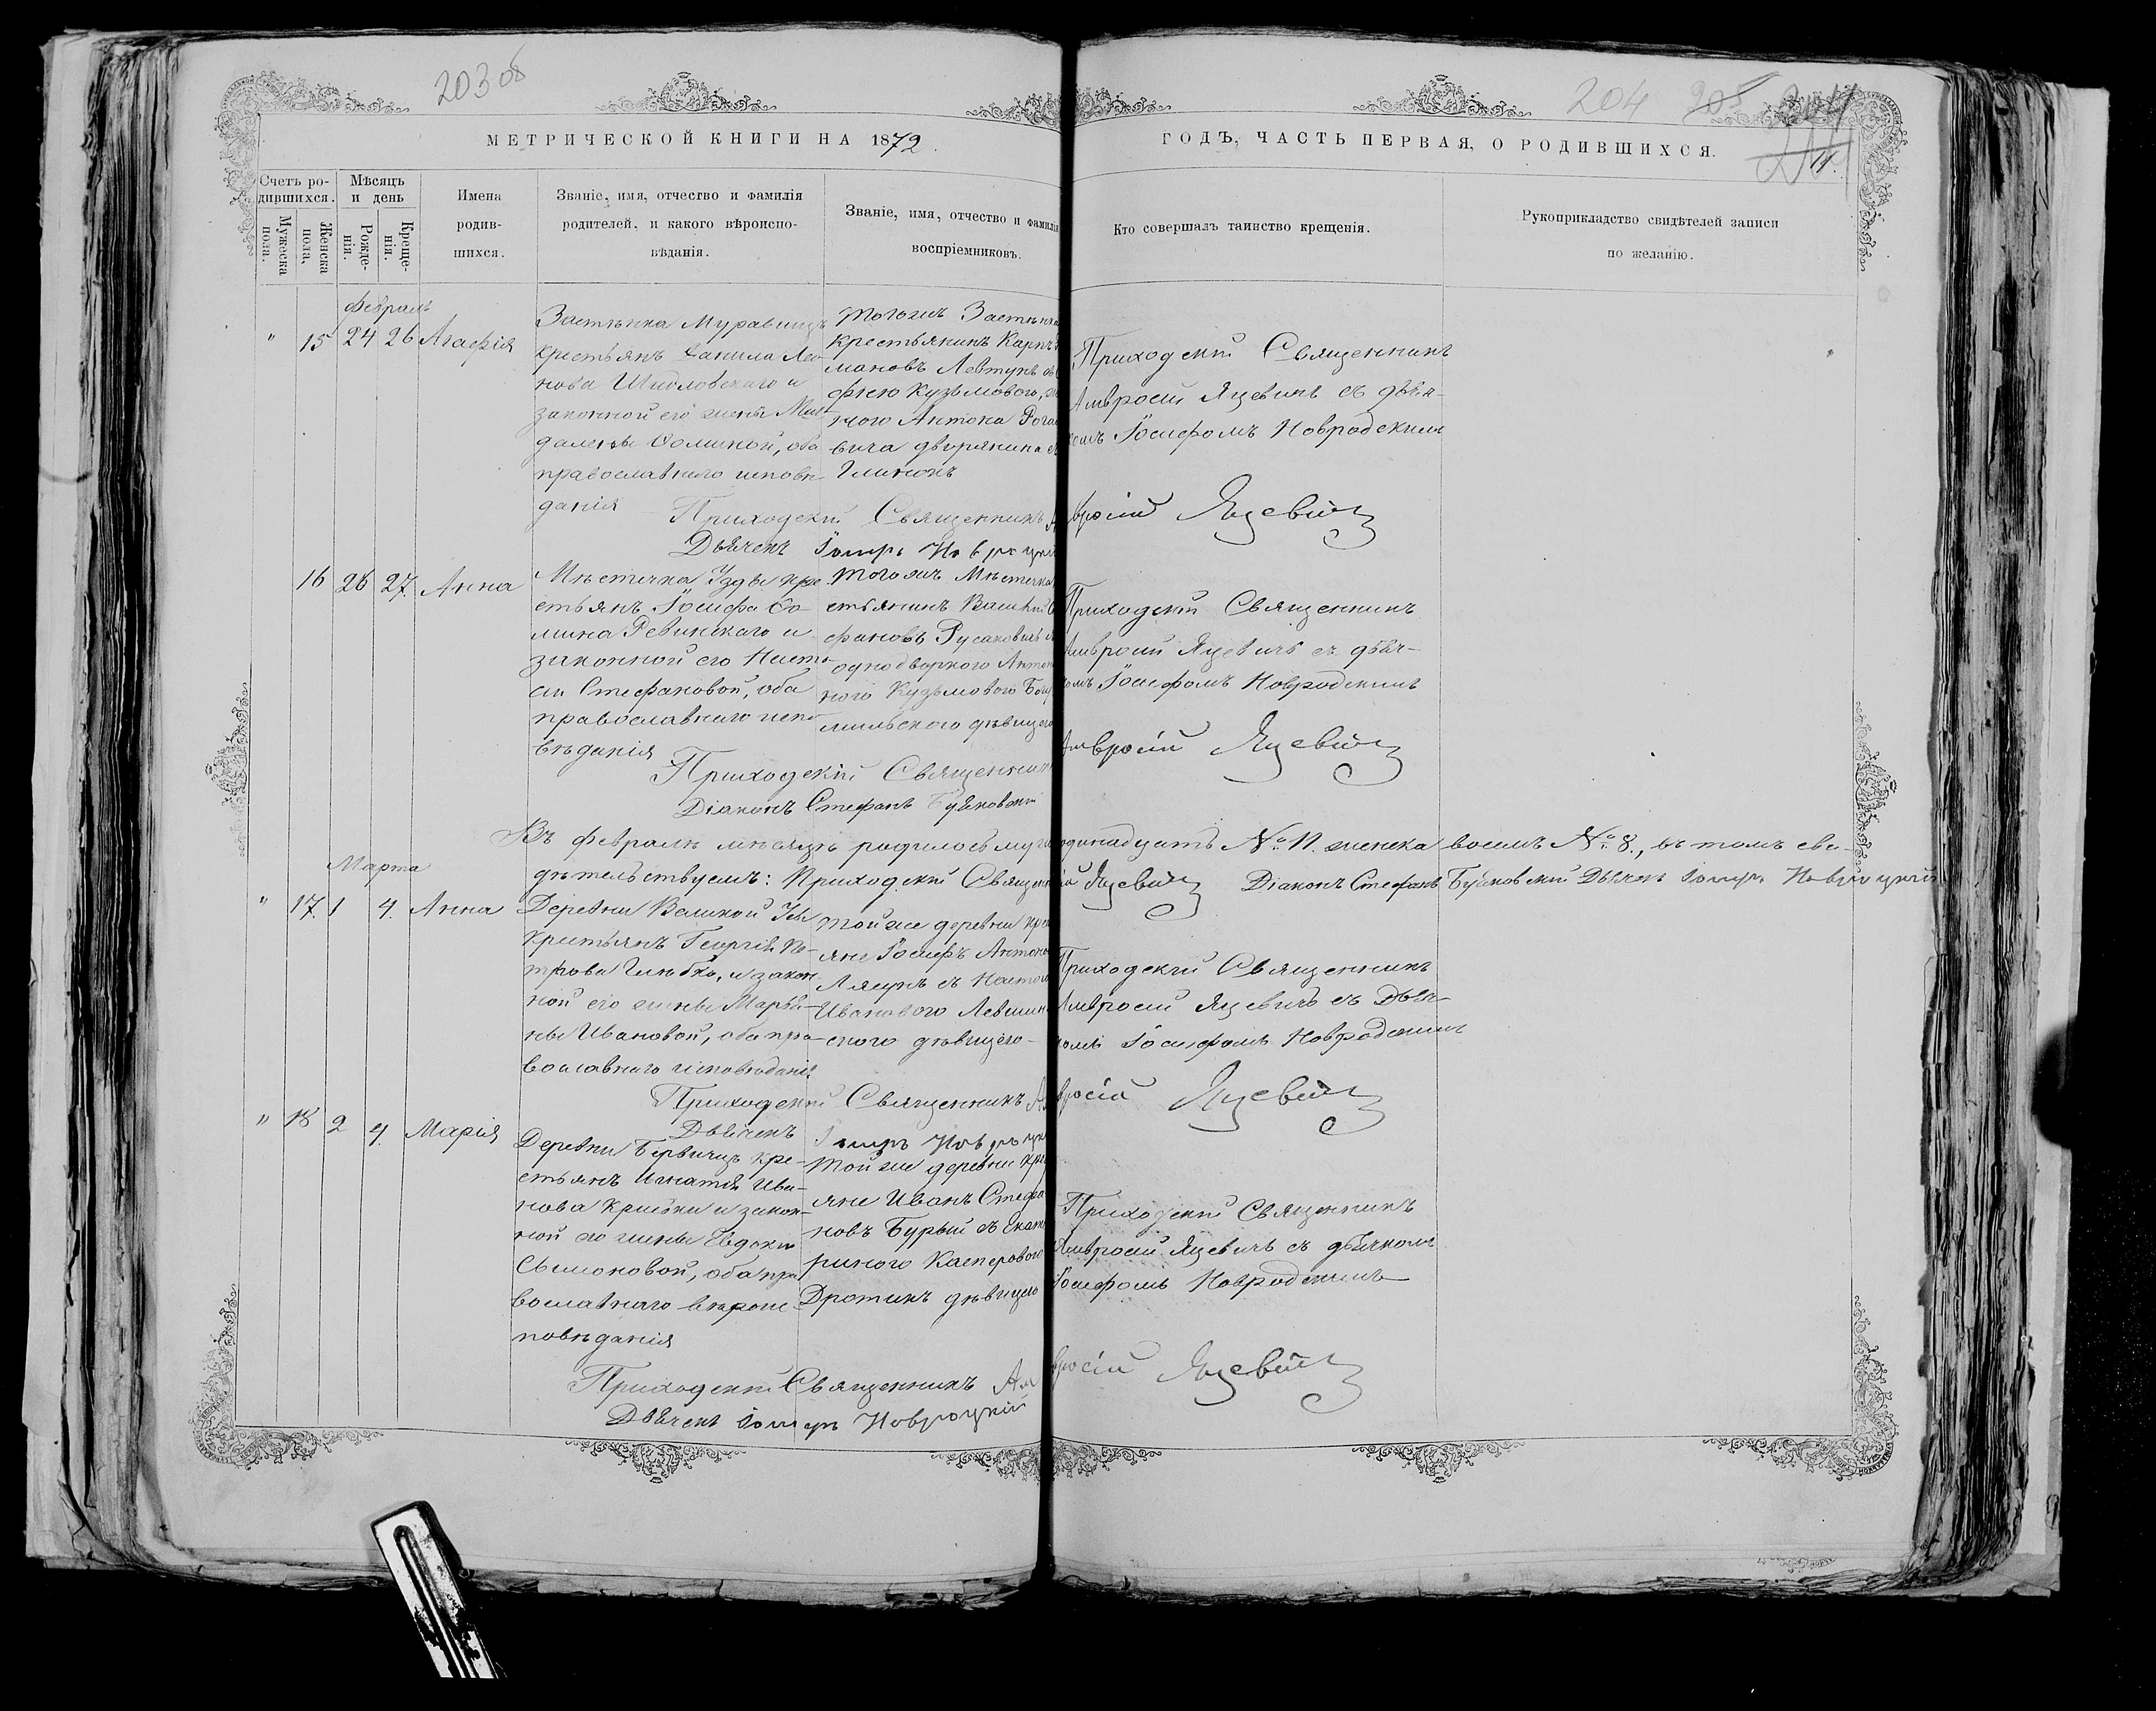 203 об
204 205 204
МЕТРИЧЕСКОЙ КНИГИ НА 1872.
ГОДЪ, ЧАСТЬ ПЕРВАЯ, О РОДИВШИХСЯ.
11.
Счетъ ро-
дившихся.
Мужеска
пола.
Женска
пола,
Мѣсяцъ
и день
Рожде-
нія.
Креще-
нія.
Имена
родив-
шихся.
Званіе, имя, отчество и фамилія
родителей, и какого вѣроиспо-
вѣданія.
Званіе, имя, отчество и фамилія
воспріемниковъ.
Кто совершалъ таинство крещенія.
Рукоприкладство свидѣтелей записи
по желанію.
Февраль
" 15 24 26 Агафія
Застѣнка Муравищъ
крестьянъ Данила Лео-
нова Шидловскаго и
законной его жены Маг
далены Ѳоминой, оба
православнаго исповѣ-
данія
Тогожъ Застѣнка
крестьянинъ Карпъ
мановъ Левтунъ съ
фіею Кузьмовою,
ною Антона
вича дворянина
Глинскъ
Приходскій Священникъ
Амвросій Яцевичъ съ дьяч-
комъ Іосифомъ Новродскимъ
Приходскій Священникъ Амвросій Яцевичъ
Дьячекъ Іосифъ Новроцкій
16 26 27. Анна
Мѣстечка Узды кре-
стьянъ Іосифа Ѳо-
мина Ревинскаго и
законной его Наста-
сіи Стефановой, оба
православнаго испо-
вѣданія
Тогожъ Мѣстечка
стьянинъ Василій
фановъ Русаковичъ
однодворкою Антон
ною Кузьмовою
мильскою дѣвицею
Приходскій Священникъ
Амвросій Яцевичъ съ дьяч-
комъ Іосифомъ Новродскимъ
Приходскій Священникъ Амвросій Яцевичъ
Діаконъ Стефанъ Буяковскій
Въ февралѣ мѣсяцѣ родилось муж одинадцать № 11. женска восемъ № 8., въ томъ сви-
дѣтельствуемъ: Приходскій Священ Яцевичъ Діаконъ Стефанъ Буяковскій Дьячекъ Іосифъ Новроцкій
Марта
" 17. 1 4. Анна
Деревни Великой Усы
крестьянъ Георгія Пе-
трова Глѣбко, и закон-
ной его жены Марья-
ны Ивановой, оба пра-
вославнаго исповѣданія
Той же деревни кре
яне Іосифъ Антоно
Ляцукъ съ Настою
Ивановою Левшин
скою дѣвицею
Приходскій Священникъ
Амвросій Яцевичъ съ Дьяч-
комъ Іосифомъ Новродскимъ
Приходскій Священникъ Амвросій Яцевичъ
Дьячекъ Іосифъ Новроцкій
" 18 2 4. Марія
Деревни Бервищъ кре-
стьянъ Игнатія Ива-
нова и закон-
ной его жены Евдокіи
Сымоновой, оба пра
вославнаго вѣроис-
повѣданія
Той же деревни кре
яне Иванъ Стефа
новъ Бурый съ Екате
риною Касперовою
Дротикъ дѣвицею
Приходскій Священникъ
Амвросій Яцевичъ съ дьячкомъ
Іосифомъ Новродскимъ
Приходскій Священникъ Амвросій Яцевичъ
Дьячекъ Іосифъ Новроцкій